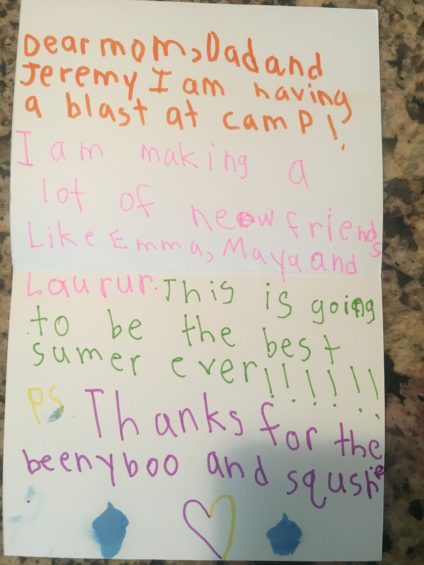 Dear mom, Dad and
Jeremy I am having
a blast at camp!
I am making a
lot of new friends
Like Emma, Maya and
Laurur. This is going
to be the best
sumer ever!!!!!!!
PS. Thanks for the
beenyboo and squshie